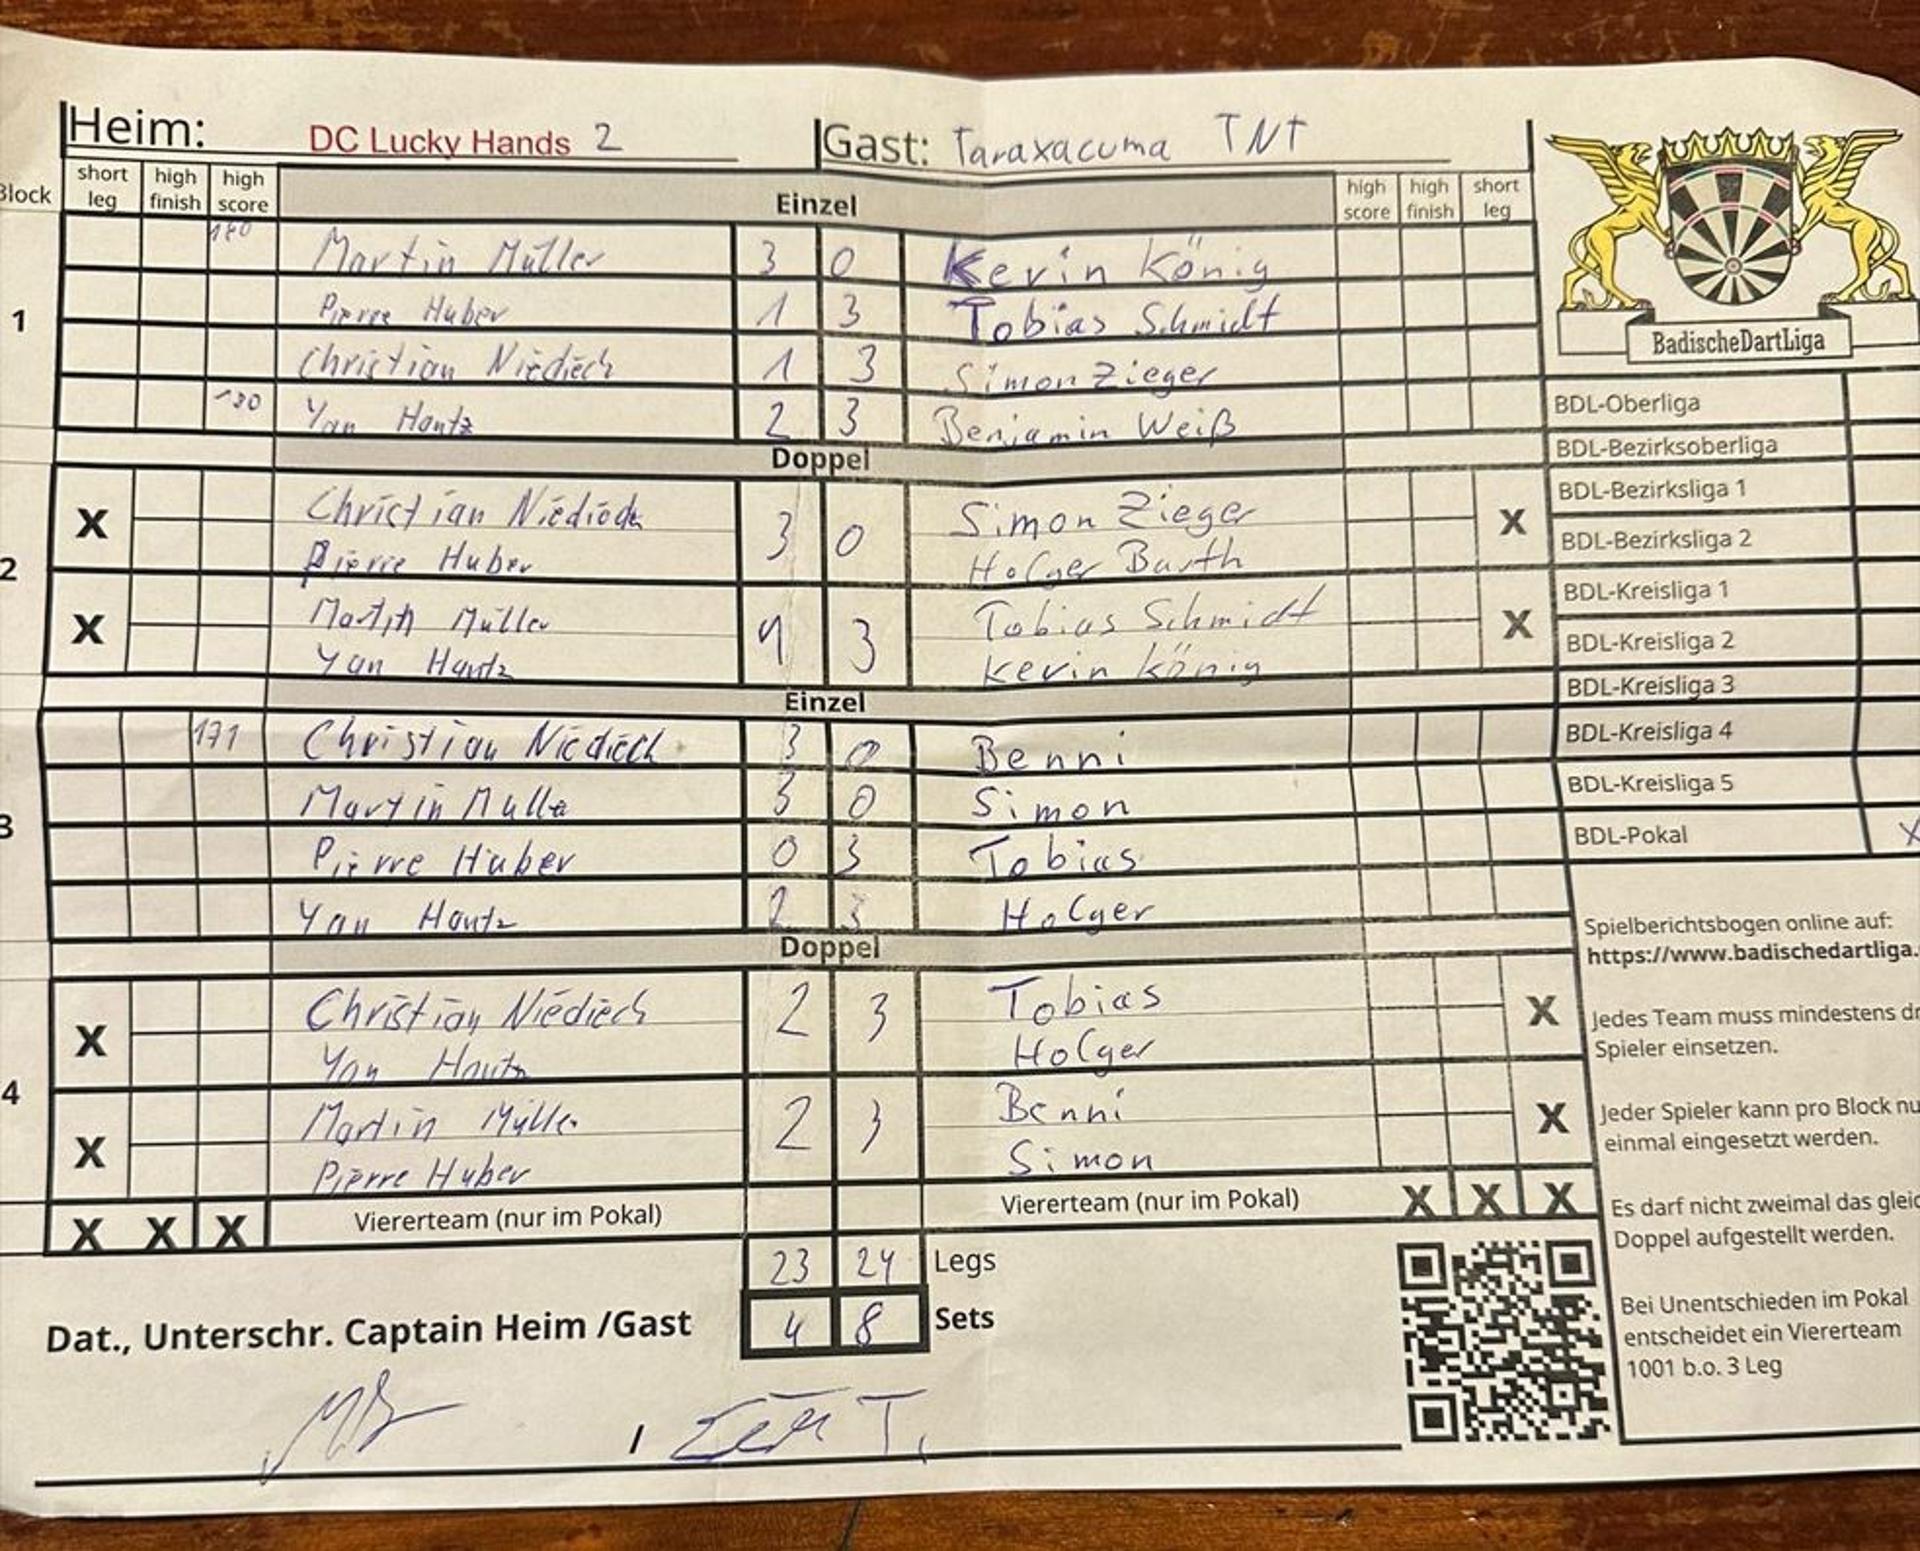 Heim: DC Lucky Hands 2 Gast: Taraxacuma TNT
Block short leg high finish high score Einzel high score high finish short leg
180 Martin Müller 3 0 Kevin König
1 Pierre Huber 1 3 Tobias Schmidt
Christian Niediech 1 3 Simon Zieger
Yan Hantz 2 3 Benjamin Weiß
Doppel
X Christian Niediech 3 0 Simon Zieger X
2 Pierre Huber Holger Barth
X Martin Müller 1 3 Tobias Schmidt X
Yan Hantz Kevin König
Einzel
171 Christian Niediech 3 0 Benni
Martin Mülle 3 0 Simon
3 Pierre Huber 0 3 Tobias
Yan Hantz 2 3 Holger
Doppel
X Christian Niediech 2 3 Tobias X
Yan Hantz Holger
4
X Martin Müller 2 3 Benni X
Pierre Huber Simon
X X X Viererteam (nur im Pokal) Viererteam (nur im Pokal) X X X
23 24 Legs
Dat., Unterschr. Captain Heim /Gast 4 8 Sets
/
BadischeDartLiga
BDL-Oberliga
BDL-Bezirksoberliga
BDL-Bezirksliga 1
BDL-Bezirksliga 2
BDL-Kreisliga 1
BDL-Kreisliga 2
BDL-Kreisliga 3
BDL-Kreisliga 4
BDL-Kreisliga 5
BDL-Pokal X
Spielberichtsbogen online auf:
https://www.badischedartliga.
Jedes Team muss mindestens
Spieler einsetzen.
Jeder Spieler kann pro Block
einmal eingesetzt werden.
Es darf nicht zweimal das
Doppel aufgestellt werden.
Bei Unentschieden im Pokal
entscheidet ein Viererteam
1001 b.o. 3 Leg